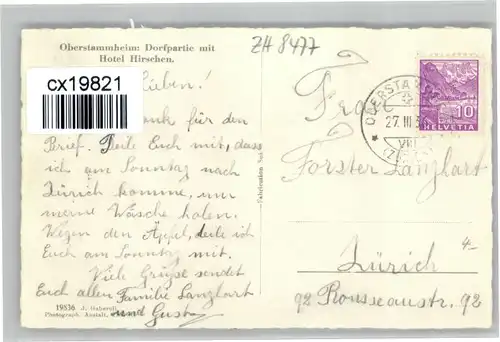 Oberstammheim: Dorfpartie mit
Hotel Hirschen.
ZH 8477
cx19821
Lieben!
Dank für den
Brief. Teile Euch mit, dass
ich am Sonntag nach
Zürich komme, um
meine Wäsche holen.
Wegen den Äpfel, teile ich
Euch am Sonntag mit.
Viele Grüße sendet
Euch allen Familie Langhart
und Gust
19836 J. Gaberell
Photograph. Anstalt,
OBERSTA
27. III 3
10
HELVETIA
Frau
Forster Langhart
4-
Zürich
92 Rousseaustr. 92